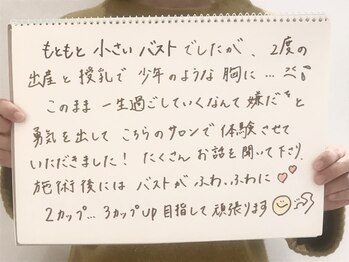 もともと 小さい バスト でしたが、2度の
出産と 授乳で 少年のような 胸に…
このまま 一生過ごしていくなんて 嫌だ と
勇気を出して こちらのサロンで 体験させて
いただきました！ たくさん お話を聞いて下さり、
施術後には バストが ふわふわに
2カップ… 3カップ UP 目指して 頑張ります